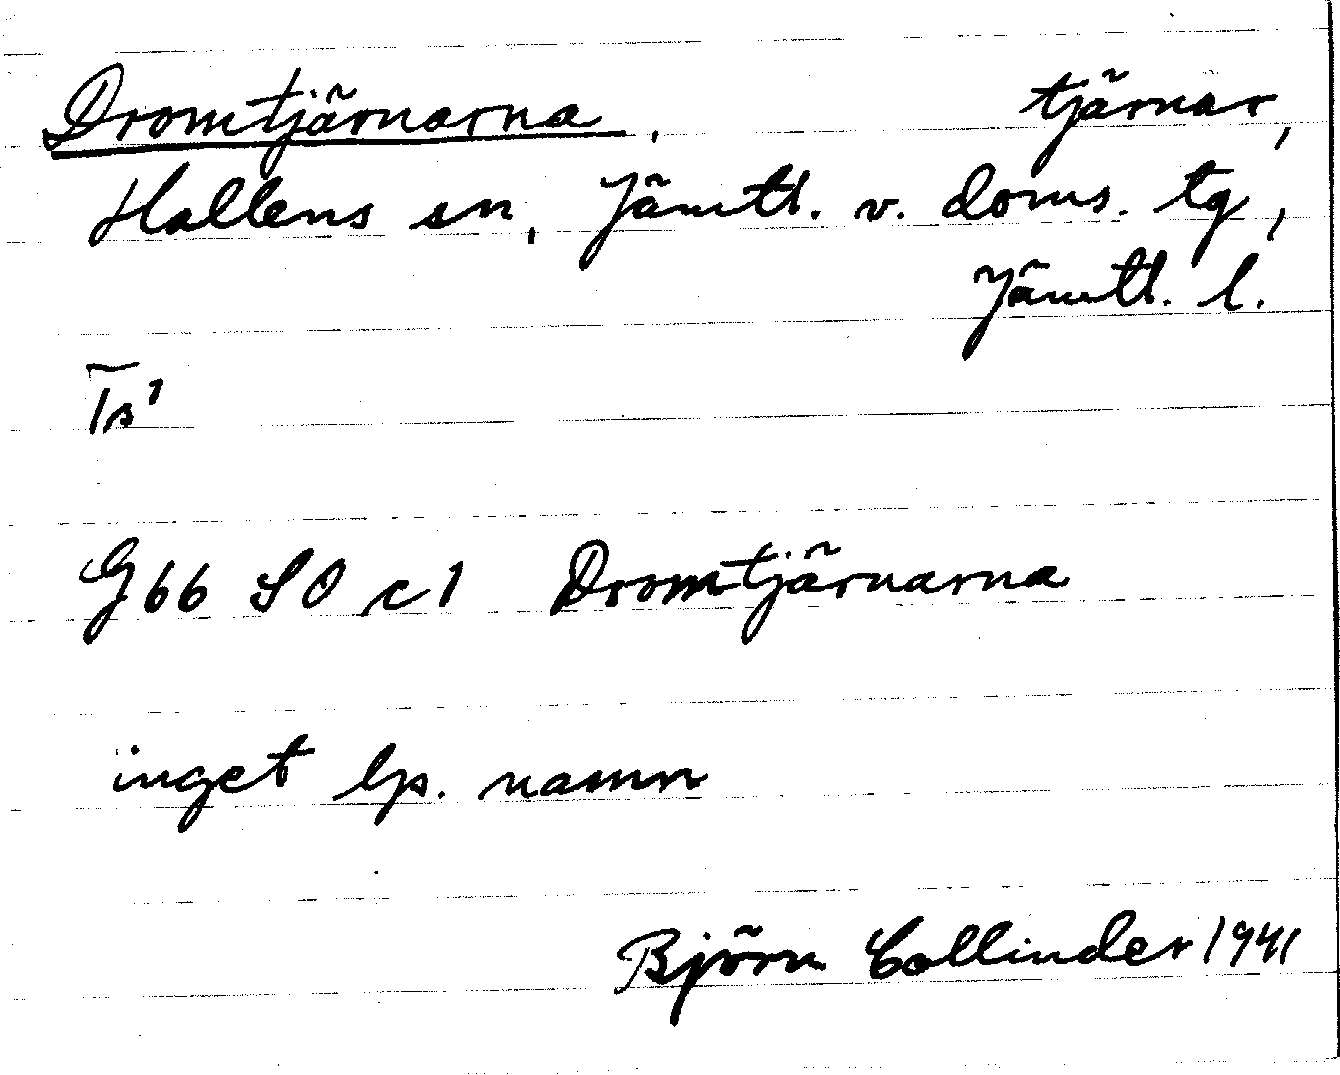 Dromtjärnarna, tjärnar,
Hallens sn, Jämtl. v. doms. tg,
Jämtl. l.
Ts1
G66 SO c1 Dromtjärnarna
inget lp. namn
Björn Collinder 1941